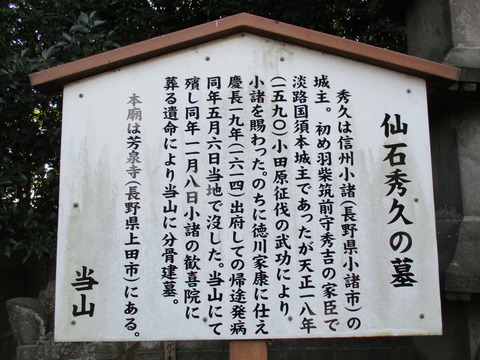 仙石秀久の墓
秀久は信州小諸(長野県小諸市)の
城主。初め羽柴筑前守秀吉の家臣で
淡路国須本城主であったが天正一八年
(一五九〇)小田原征伐の武功により
小諸を賜わった。のちに徳川家康に仕え
慶長一九年(一六一四)出府しての帰途発病
同年五月六日当地で没した。当山にて
殯し同年一一月八日小諸の歓喜院に
葬る遺命により当山に分骨建墓。
本廟は芳泉寺(長野県上田市)にある。
当山